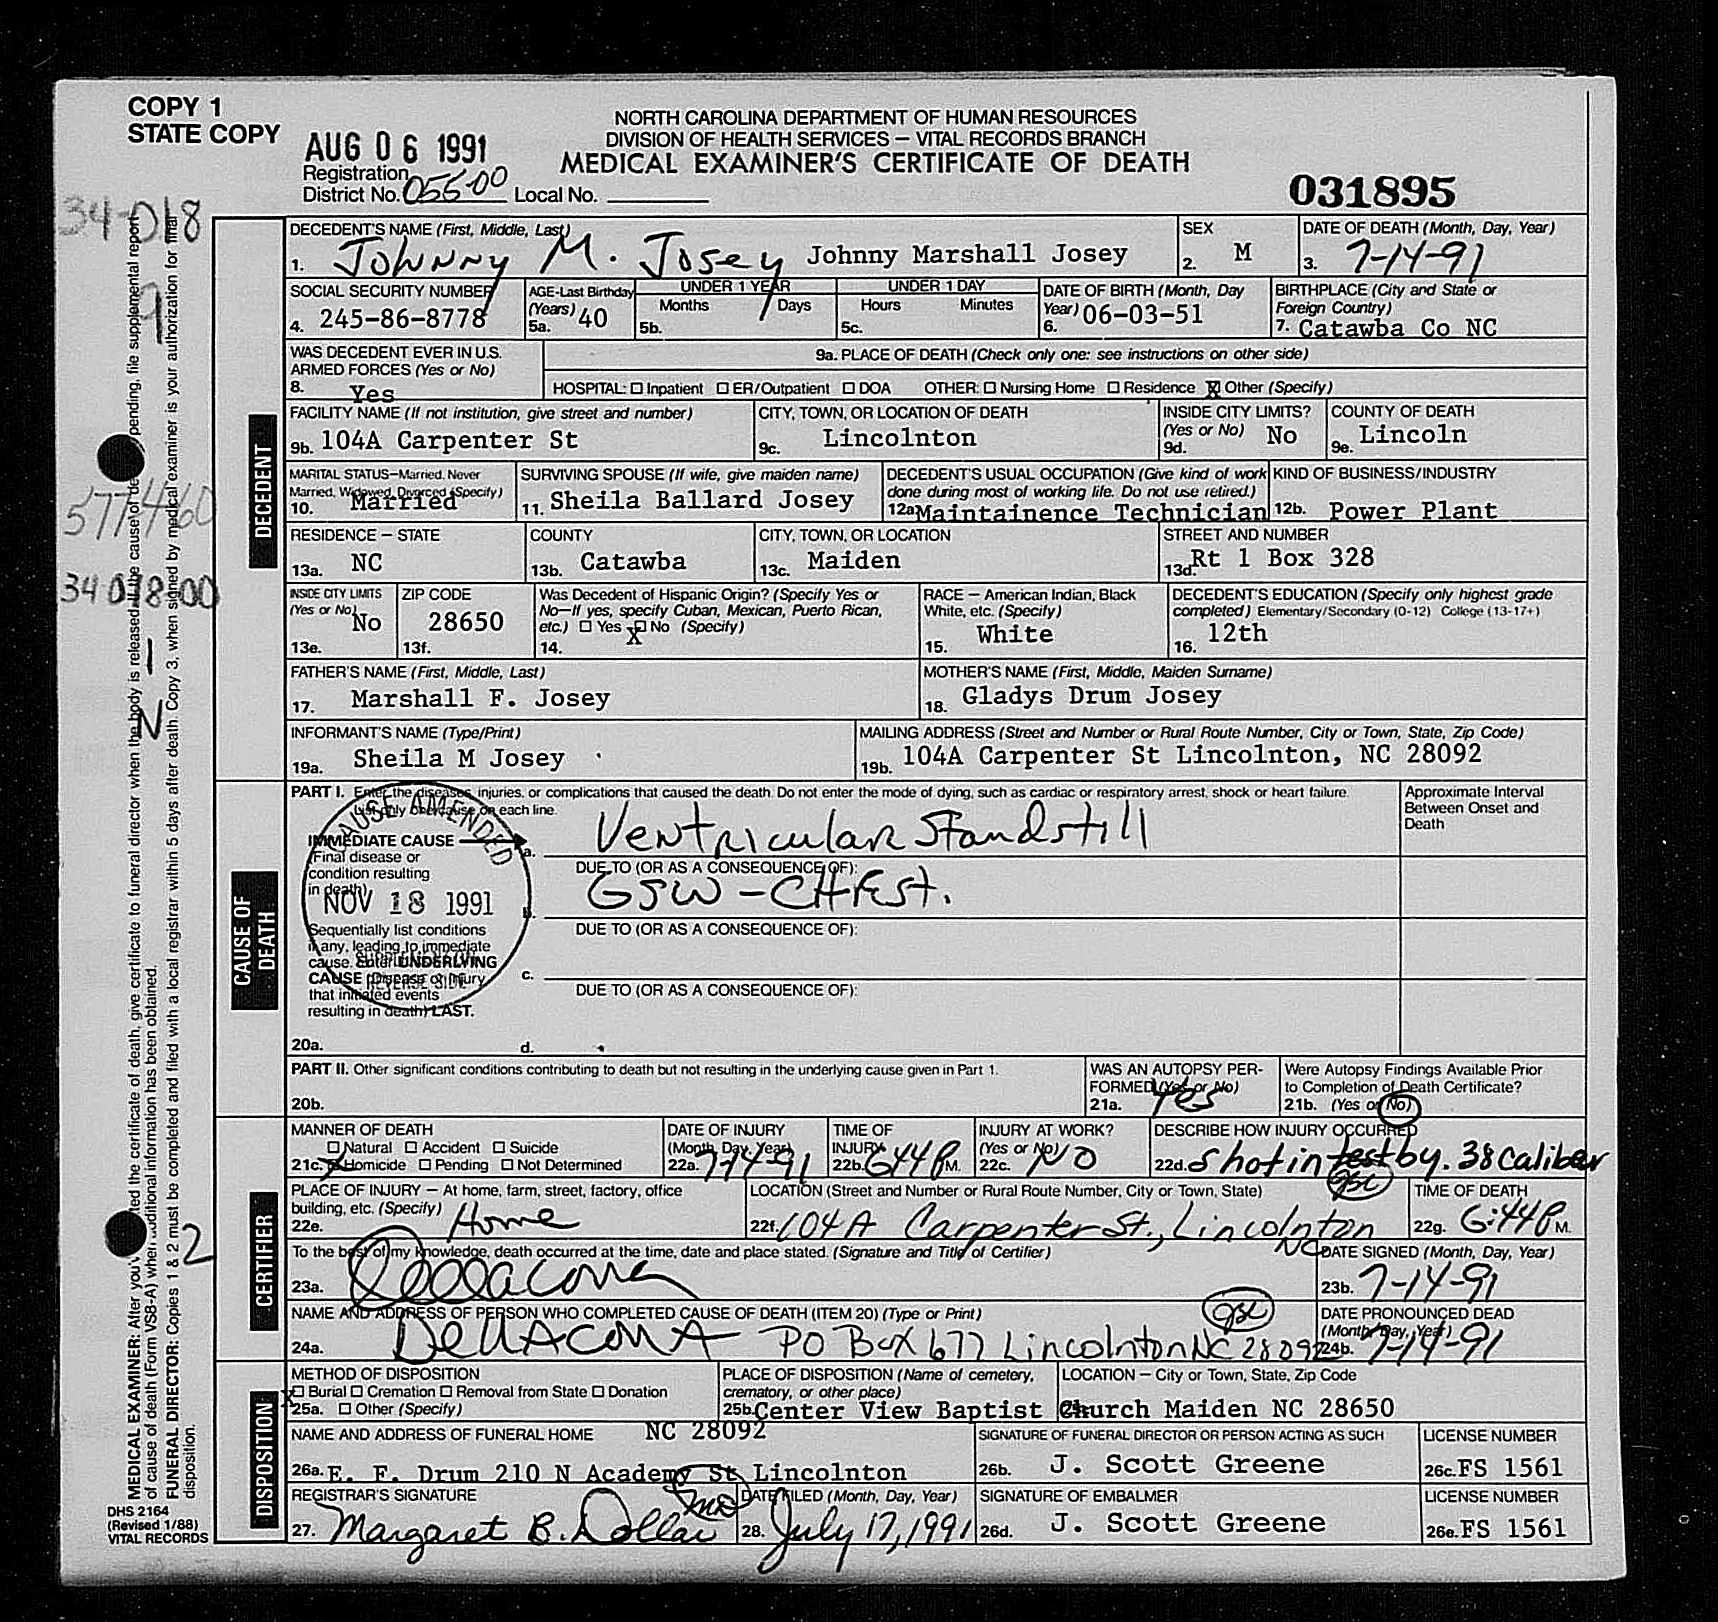 COPY 1
STATE COPY
AUG 06 1991
NORTH CAROLINA DEPARTMENT OF HUMAN RESOURCES
DIVISION OF HEALTH SERVICES — VITAL RECORDS BRANCH
MEDICAL EXAMINER'S CERTIFICATE OF DEATH
Registration
District No. 055-00 Local No.
031895
34-018
9
577460
34 018-00
1
N
2
DECEDENT
DECEDENT'S NAME (First, Middle, Last)
1. Johnny M. Josey Johnny Marshall Josey
SEX
2. M
DATE OF DEATH (Month, Day, Year)
3. 7-14-91
SOCIAL SECURITY NUMBER
4. 245-86-8778
AGE-Last Birthday
(Years)
5a. 40
UNDER 1 YEAR
Months Days
5b.
UNDER 1 DAY
Hours Minutes
5c.
DATE OF BIRTH (Month, Day
Year)
6. 06-03-51
BIRTHPLACE (City and State or
Foreign Country)
7. Catawba Co NC
WAS DECEDENT EVER IN U.S.
ARMED FORCES (Yes or No)
8. Yes
9a. PLACE OF DEATH (Check only one: see instructions on other side)
HOSPITAL: Inpatient ER/Outpatient DOA OTHER: Nursing Home Residence X Other (Specify)
FACILITY NAME (If not institution, give street and number)
9b. 104A Carpenter St
CITY, TOWN, OR LOCATION OF DEATH
9c. Lincolnton
INSIDE CITY LIMITS?
(Yes or No)
9d. No
COUNTY OF DEATH
9e. Lincoln
MARITAL STATUS—Married, Never
Married, Widowed, Divorced (Specify)
10. Married
SURVIVING SPOUSE (If wife, give maiden name)
11. Sheila Ballard Josey
DECEDENT'S USUAL OCCUPATION (Give kind of work
done during most of working life. Do not use retired.)
12a. Maintainence Technician
KIND OF BUSINESS/INDUSTRY
12b. Power Plant
RESIDENCE — STATE
13a. NC
COUNTY
13b. Catawba
CITY, TOWN, OR LOCATION
13c. Maiden
STREET AND NUMBER
13d. Rt 1 Box 328
INSIDE CITY LIMITS
(Yes or No)
13e. No
ZIP CODE
13f. 28650
Was Decedent of Hispanic Origin? (Specify Yes or
No—If yes, specify Cuban, Mexican, Puerto Rican,
etc.) Yes X No (Specify)
14.
RACE — American Indian, Black
White, etc. (Specify)
15. White
DECEDENT'S EDUCATION (Specify only highest grade
completed) Elementary/Secondary (0-12) College (13-17+)
16. 12th
FATHER'S NAME (First, Middle, Last)
17. Marshall F. Josey
MOTHER'S NAME (First, Middle, Maiden Surname)
18. Gladys Drum Josey
INFORMANT'S NAME (Type/Print)
19a. Sheila M Josey
MAILING ADDRESS (Street and Number or Rural Route Number, City or Town, State, Zip Code)
19b. 104A Carpenter St Lincolnton, NC 28092
CAUSE OF
DEATH
PART I. Enter the diseases, injuries, or complications that caused the death. Do not enter the mode of dying, such as cardiac or respiratory arrest, shock or heart failure.
List only one cause on each line.
Approximate Interval
Between Onset and
Death
CAUSE AMENDED
NOV 18 1991
REVERSE SIDE
IMMEDIATE CAUSE
(Final disease or
condition resulting
in death)
a. Ventricular Standstill
DUE TO (OR AS A CONSEQUENCE OF):
b. GSW - CHEst.
Sequentially list conditions
if any, leading to immediate
cause. Enter UNDERLYING
CAUSE (Disease or injury
that initiated events
resulting in death) LAST.
DUE TO (OR AS A CONSEQUENCE OF):
c.
DUE TO (OR AS A CONSEQUENCE OF):
20a. d.
PART II. Other significant conditions contributing to death but not resulting in the underlying cause given in Part 1.
20b.
WAS AN AUTOPSY PER-
FORMED (Yes or No)
21a. Yes
Were Autopsy Findings Available Prior
to Completion of Death Certificate?
21b. (Yes or No)
CERTIFIER
MANNER OF DEATH
Natural Accident Suicide
21c. X Homicide Pending Not Determined
DATE OF INJURY
(Month, Day, Year)
22a. 7-14-91
TIME OF
INJURY
22b. 6:44 P M.
INJURY AT WORK?
(Yes or No)
22c. NO
DESCRIBE HOW INJURY OCCURRED
22d. Shot in test by .38 caliber
PLACE OF INJURY — At home, farm, street, factory, office
building, etc. (Specify)
22e. Home
LOCATION (Street and Number or Rural Route Number, City or Town, State)
22f. 104 A Carpenter St., Lincolnton
NC
TIME OF DEATH
22g. 6:44 P M.
To the best of my knowledge, death occurred at the time, date and place stated. (Signature and Title of Certifier)
23a. Dellacona
DATE SIGNED (Month, Day, Year)
23b. 7-14-91
NAME AND ADDRESS OF PERSON WHO COMPLETED CAUSE OF DEATH (ITEM 20) (Type or Print)
24a. DellAconA PO Box 677 Lincolnton NC 28092
DATE PRONOUNCED DEAD
(Month, Day, Year)
24b. 7-14-91
DISPOSITION
METHOD OF DISPOSITION
X Burial Cremation Removal from State Donation
25a. Other (Specify)
PLACE OF DISPOSITION (Name of cemetery,
crematory, or other place)
25b. Center View Baptist Church
LOCATION — City or Town, State, Zip Code
Maiden NC 28650
NAME AND ADDRESS OF FUNERAL HOME NC 28092
26a. E. F. Drum 210 N Academy St Lincolnton
SIGNATURE OF FUNERAL DIRECTOR OR PERSON ACTING AS SUCH
26b. J. Scott Greene
LICENSE NUMBER
26c. FS 1561
REGISTRAR'S SIGNATURE
27. Margaret B. Dollar
DATE FILED (Month, Day, Year)
28. July 17, 1991
SIGNATURE OF EMBALMER
26d. J. Scott Greene
LICENSE NUMBER
26e. FS 1561
of cause of death (Form VS8-A) when additional information has been obtained.
FUNERAL DIRECTOR: Copies 1 & 2 must be completed and filed with a local registrar within 5 days after death. Copy 3, when signed by medical examiner is your authorization for final
disposition.
DHS 2164
(Revised 1/88)
VITAL RECORDS